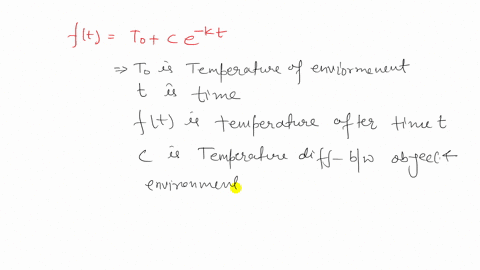 f(t) = T₀ + C e^{-kt}
⇒ T₀ is Temperature of enviormenent
t is time
f(t) is temperature after time t
C is Temperature diff- b/w object
environment